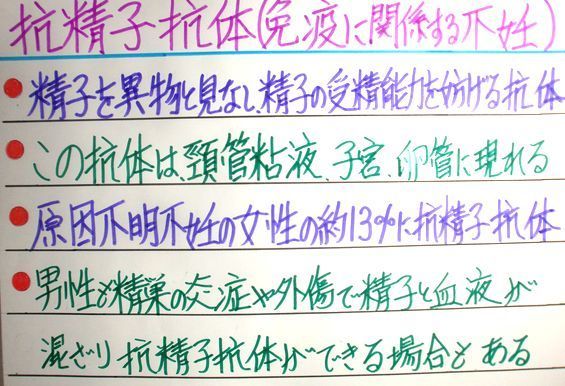 抗精子抗体(免疫に関係する不妊)
精子を異物と見なし、精子の受精能力を妨げる抗体
この抗体は、頚管粘液、子宮、卵管に現れる
原因不明不妊の女性の約13%に抗精子抗体
男性も精巣の炎症や外傷で精子と血液が
混ざり抗精子抗体ができる場合もある